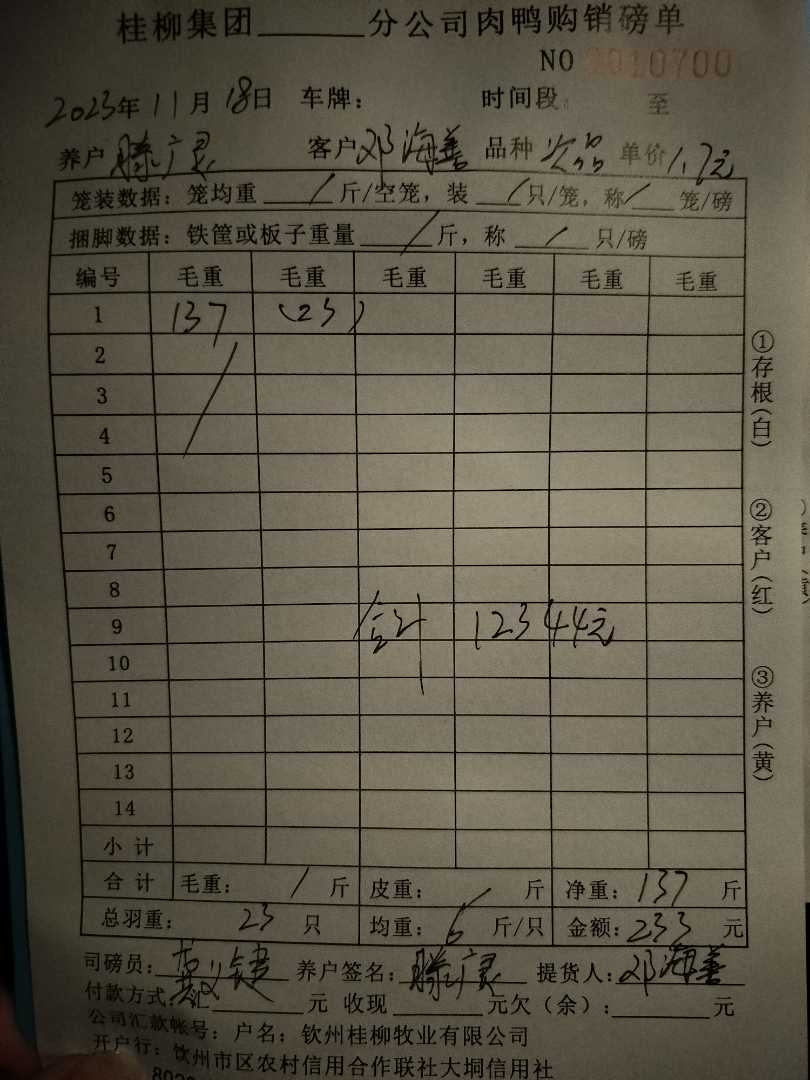 桂柳集团______分公司肉鸭购销磅单
NO 0010700
2023年11月18日 车牌: 时间段: 至
养户 滕广灵 客户 邓海善 品种 次品 单价 1.7元
笼装数据: 笼均重 / 斤/空笼, 装 / 只/笼, 称 / 笼/磅
捆脚数据: 铁筐或板子重量 / 斤, 称 / 只/磅
编号 毛重 毛重 毛重 毛重 毛重 毛重
1 137 (23)
2
3
4
5
6
7
8
9 合计 12344元
10
11
12
13
14
小计
合计 毛重: / 斤 皮重: / 斤 净重: 137 斤
总羽重: 23 只 均重: 6 斤/只 金额: 233 元
司磅员: 养户签名: 滕广灵 提货人: 邓海善
付款方式: 汇______元 收现______元欠(余):______元
公司汇款帐号: 户名: 钦州桂柳牧业有限公司
开户行: 钦州市区农村信用合作联社大垌信用社
①存根(白)
②客户(红)
③养户(黄)